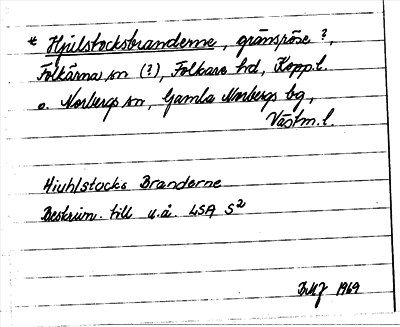 * Hjulstocksbranderne, gränsröse ?,
Folkärna sn (?), Folkare hd, Kopp.l.
o. Norbergs sn, Gamla Norbergs bg,
Västm.l.
Hiuhlstocks Branderne
Beskrivn. till u.å. LSA S2
1969